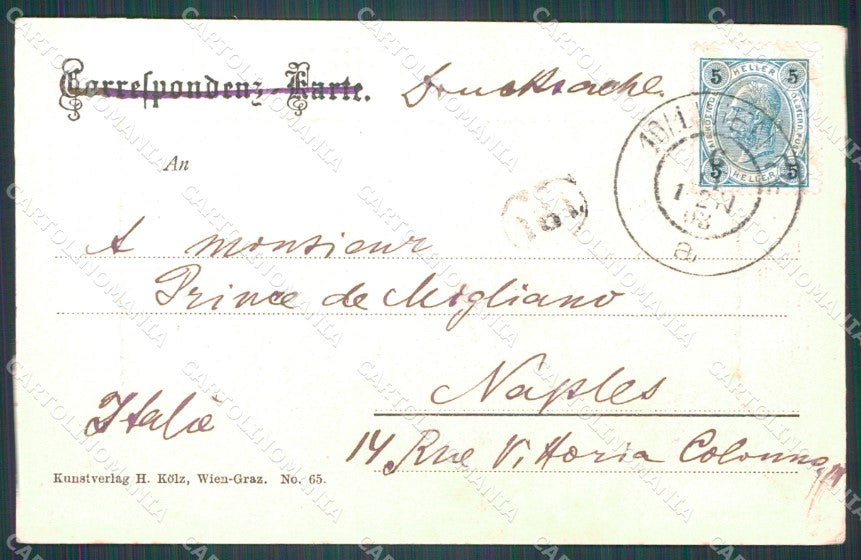 Correspondenz-Karte. Drucksache.
5 HELLER 5
5 HELLER 5
An
A monsieur
Prince de Migliano
Naples
Italie
14 Rue Vittoria Colonna
Kunstverlag H. Kölz, Wien-Graz. No. 65.
CARTOLINOMANIA